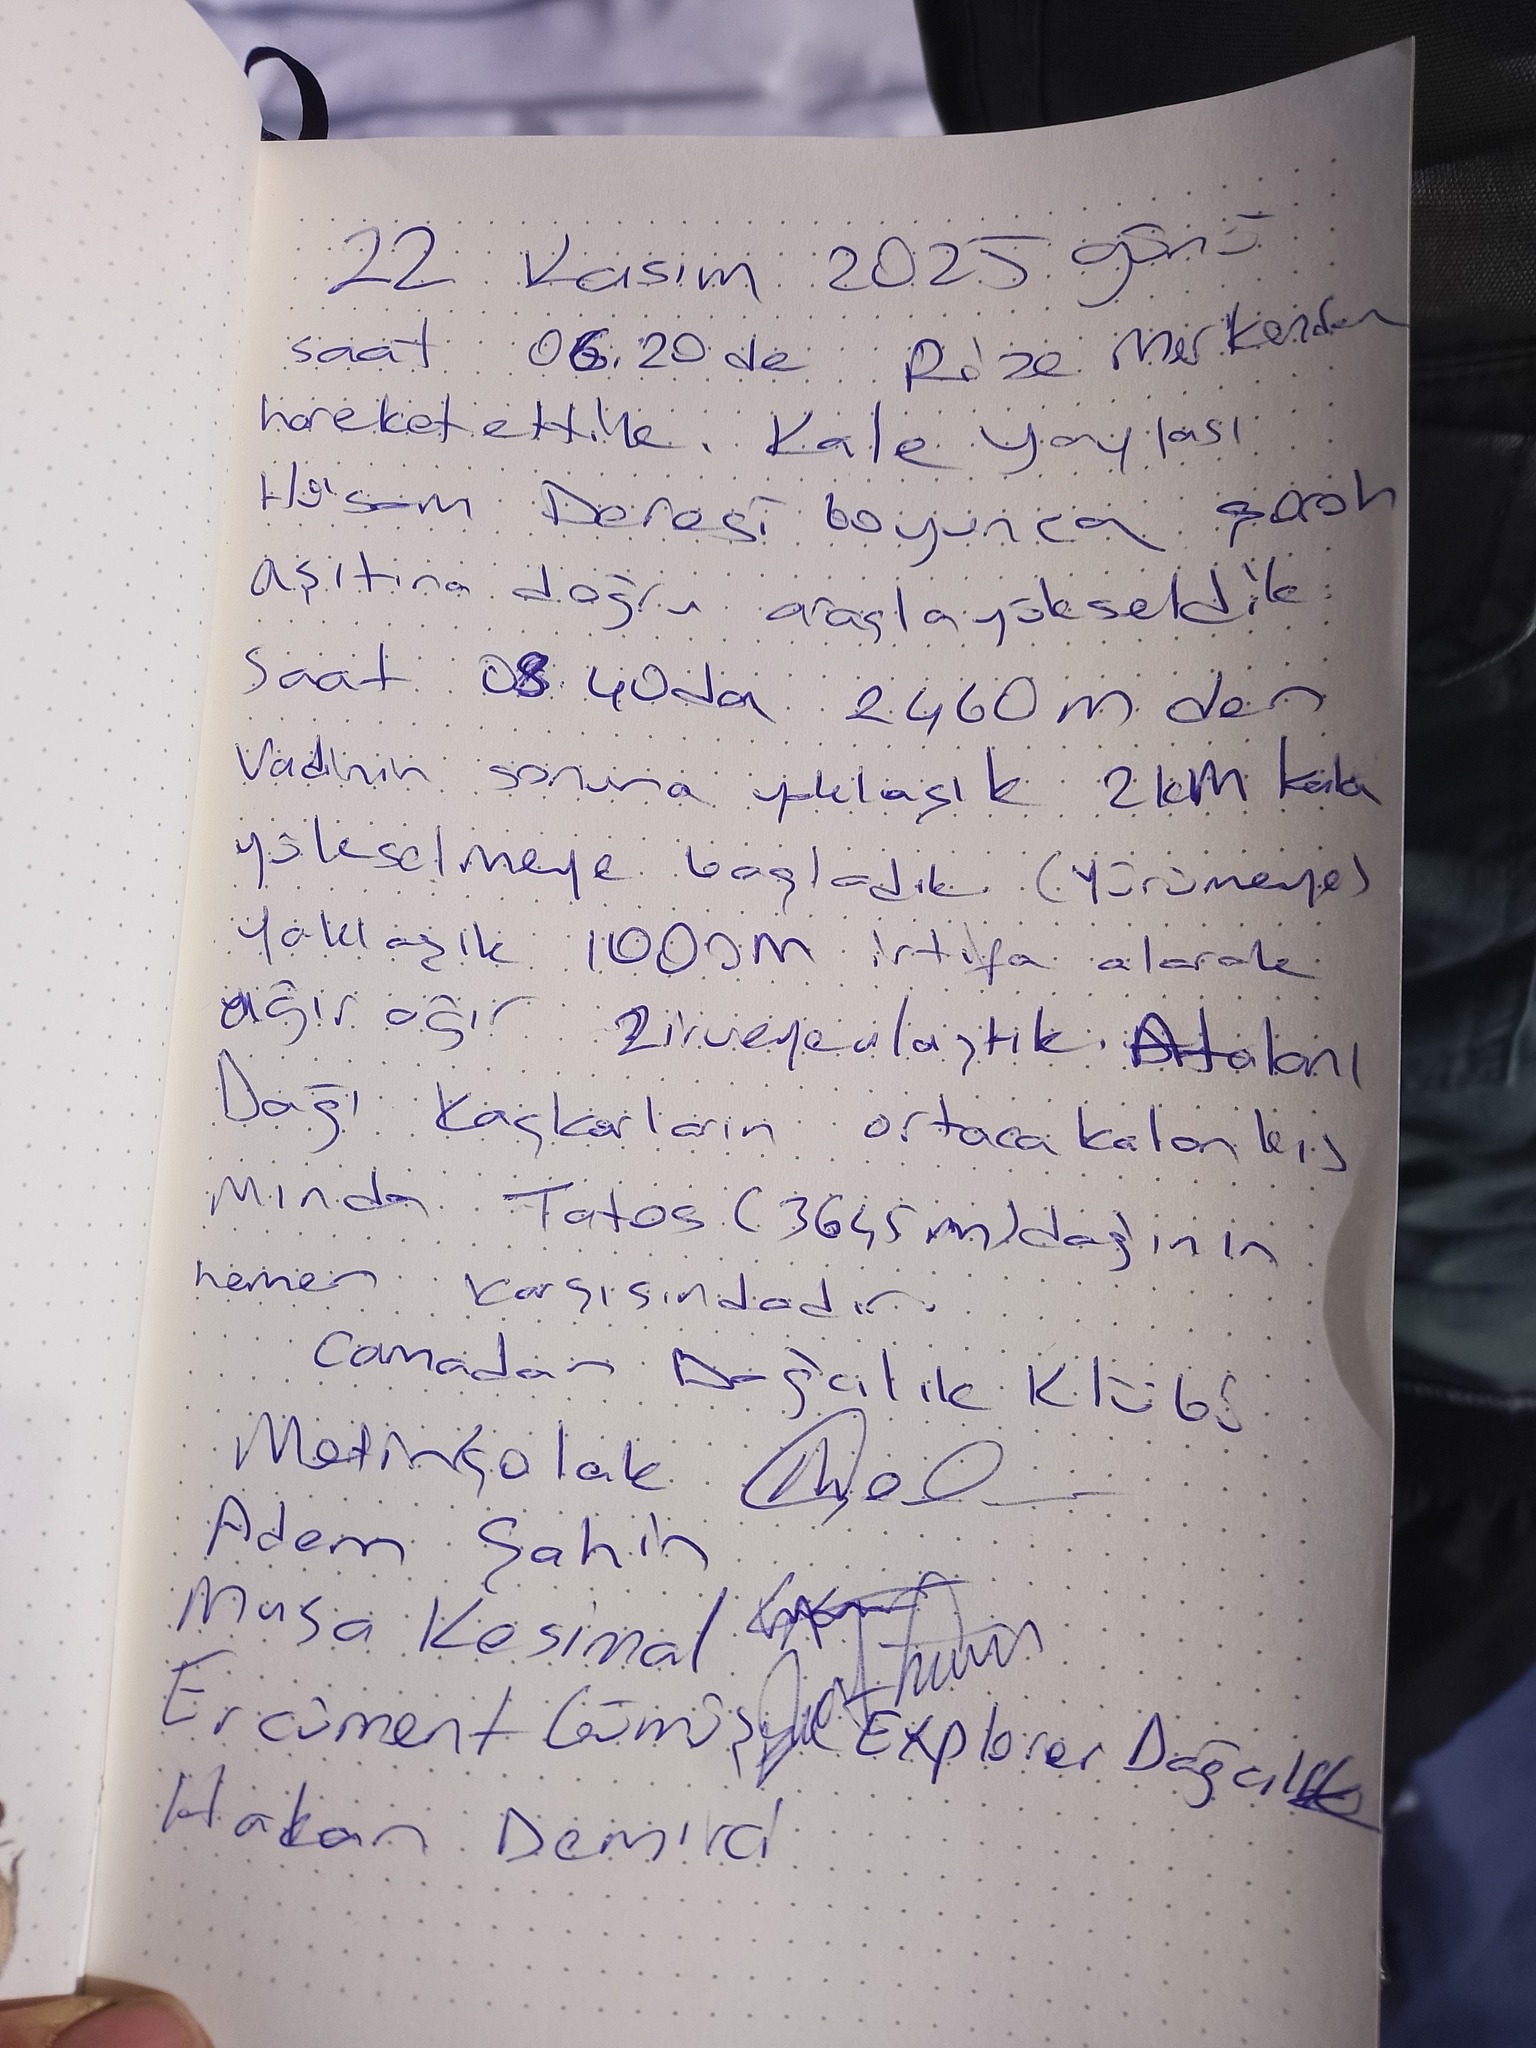 22 Kasım 2025 günü
saat 06.20 de Rize Merkezden
hareket ettik. Kale yaylası
Hisam Deresi boyunca
aşıtına doğru araçla yükseldik.
Saat 08.40 da 2460 m den
Vadinin sonuna yaklaşık 2km kala
yükselmeye başladık (yürümeye)
yaklaşık 1000m irtifa alarak
ağır ağır zirveye ulaştık. Altalanı
Dağı Kaçkarların ortaca kalan kıs
mında Tatos (3645 m) dağının
hemen karşısındadır.
Camadan Dağcılık Klübü
Metin Çolak
Adem Şahin
Musa Kesimal
Ercüment Explorer Dağcılık
Hakan Demirci